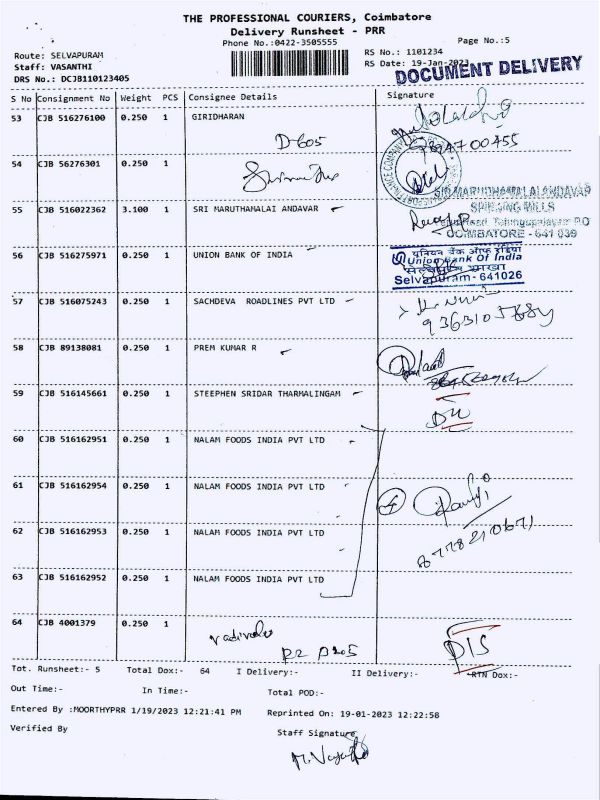 THE PROFESSIONAL COURIERS, Coimbatore
Delivery Runsheet - PRR
Phone No.:0422-3505555
Page No.:5
Route: SELVAPURAM
Staff: VASANTHI
DRS No.: DCJB110123405
RS No.: 1101234
RS Date: 19-Jan-2023
DOCUMENT DELIVERY
S No Consignment No Weight PCS Consignee Details Signature
53 CJB 516276100 0.250 1 GIRIDHARAN
D-605
54 CJB 56276301 0.250 1
55 CJB 516022362 3.100 1 SRI MARUTHAMALAI ANDAVAR
SRI MARUDHAMALAI ANDAVAR
SPINNING MILLS
COIMBATORE - 641 039
56 CJB 516275971 0.250 1 UNION BANK OF INDIA
यूनियन बैंक ऑफ इंडिया
Union Bank Of India
Selvapuram- 641026
57 CJB 516075243 0.250 1 SACHDEVA ROADLINES PVT LTD
58 CJB 89138081 0.250 1 PREM KUMAR R
59 CJB 516145661 0.250 1 STEEPHEN SRIDAR THARMALINGAM
60 CJB 516162951 0.250 1 NALAM FOODS INDIA PVT LTD
61 CJB 516162954 0.250 1 NALAM FOODS INDIA PVT LTD
4
62 CJB 516162953 0.250 1 NALAM FOODS INDIA PVT LTD
63 CJB 516162952 0.250 1 NALAM FOODS INDIA PVT LTD
64 CJB 4001379 0.250 1
Tot. Runsheet:- 5 Total Dox:- 64 I Delivery:- II Delivery:- RTN Dox:-
Out Time:- In Time:- Total POD:-
Entered By :MOORTHYPRR 1/19/2023 12:21:41 PM Reprinted On: 19-01-2023 12:22:58
Verified By Staff Signature